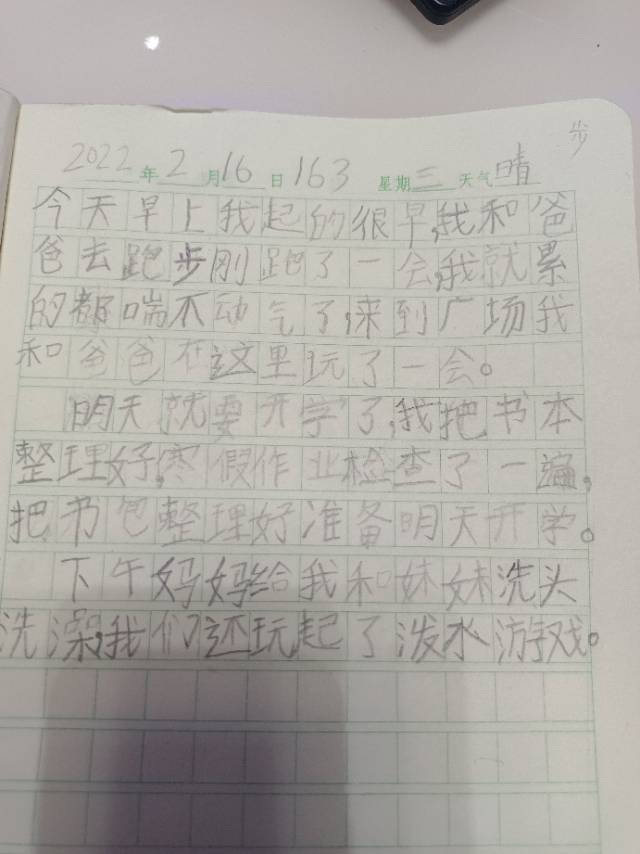 步
2022年2月16日163 星期三天气晴
今天早上我起的很早,我和爸
爸去跑步刚跑了一会,我就累
的都喘不动气了,来到广场我
和爸爸在这里玩了一会。
明天就要开学了,我把书本
整理好,寒假作业检查了一遍,
把书包整理好准备明天开学。
下午妈妈给我和妹妹洗头
洗澡,我们还玩起了泼水游戏。